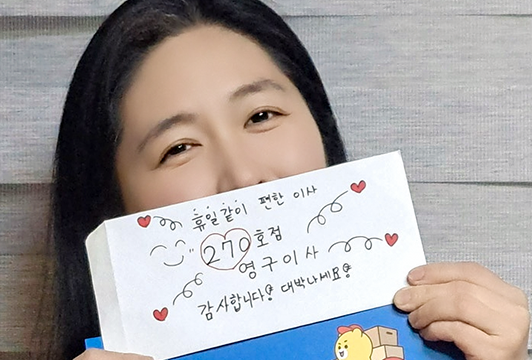 휴일같이 편한 이사
270호점
영구이사
감사합니다! 대박나세요!